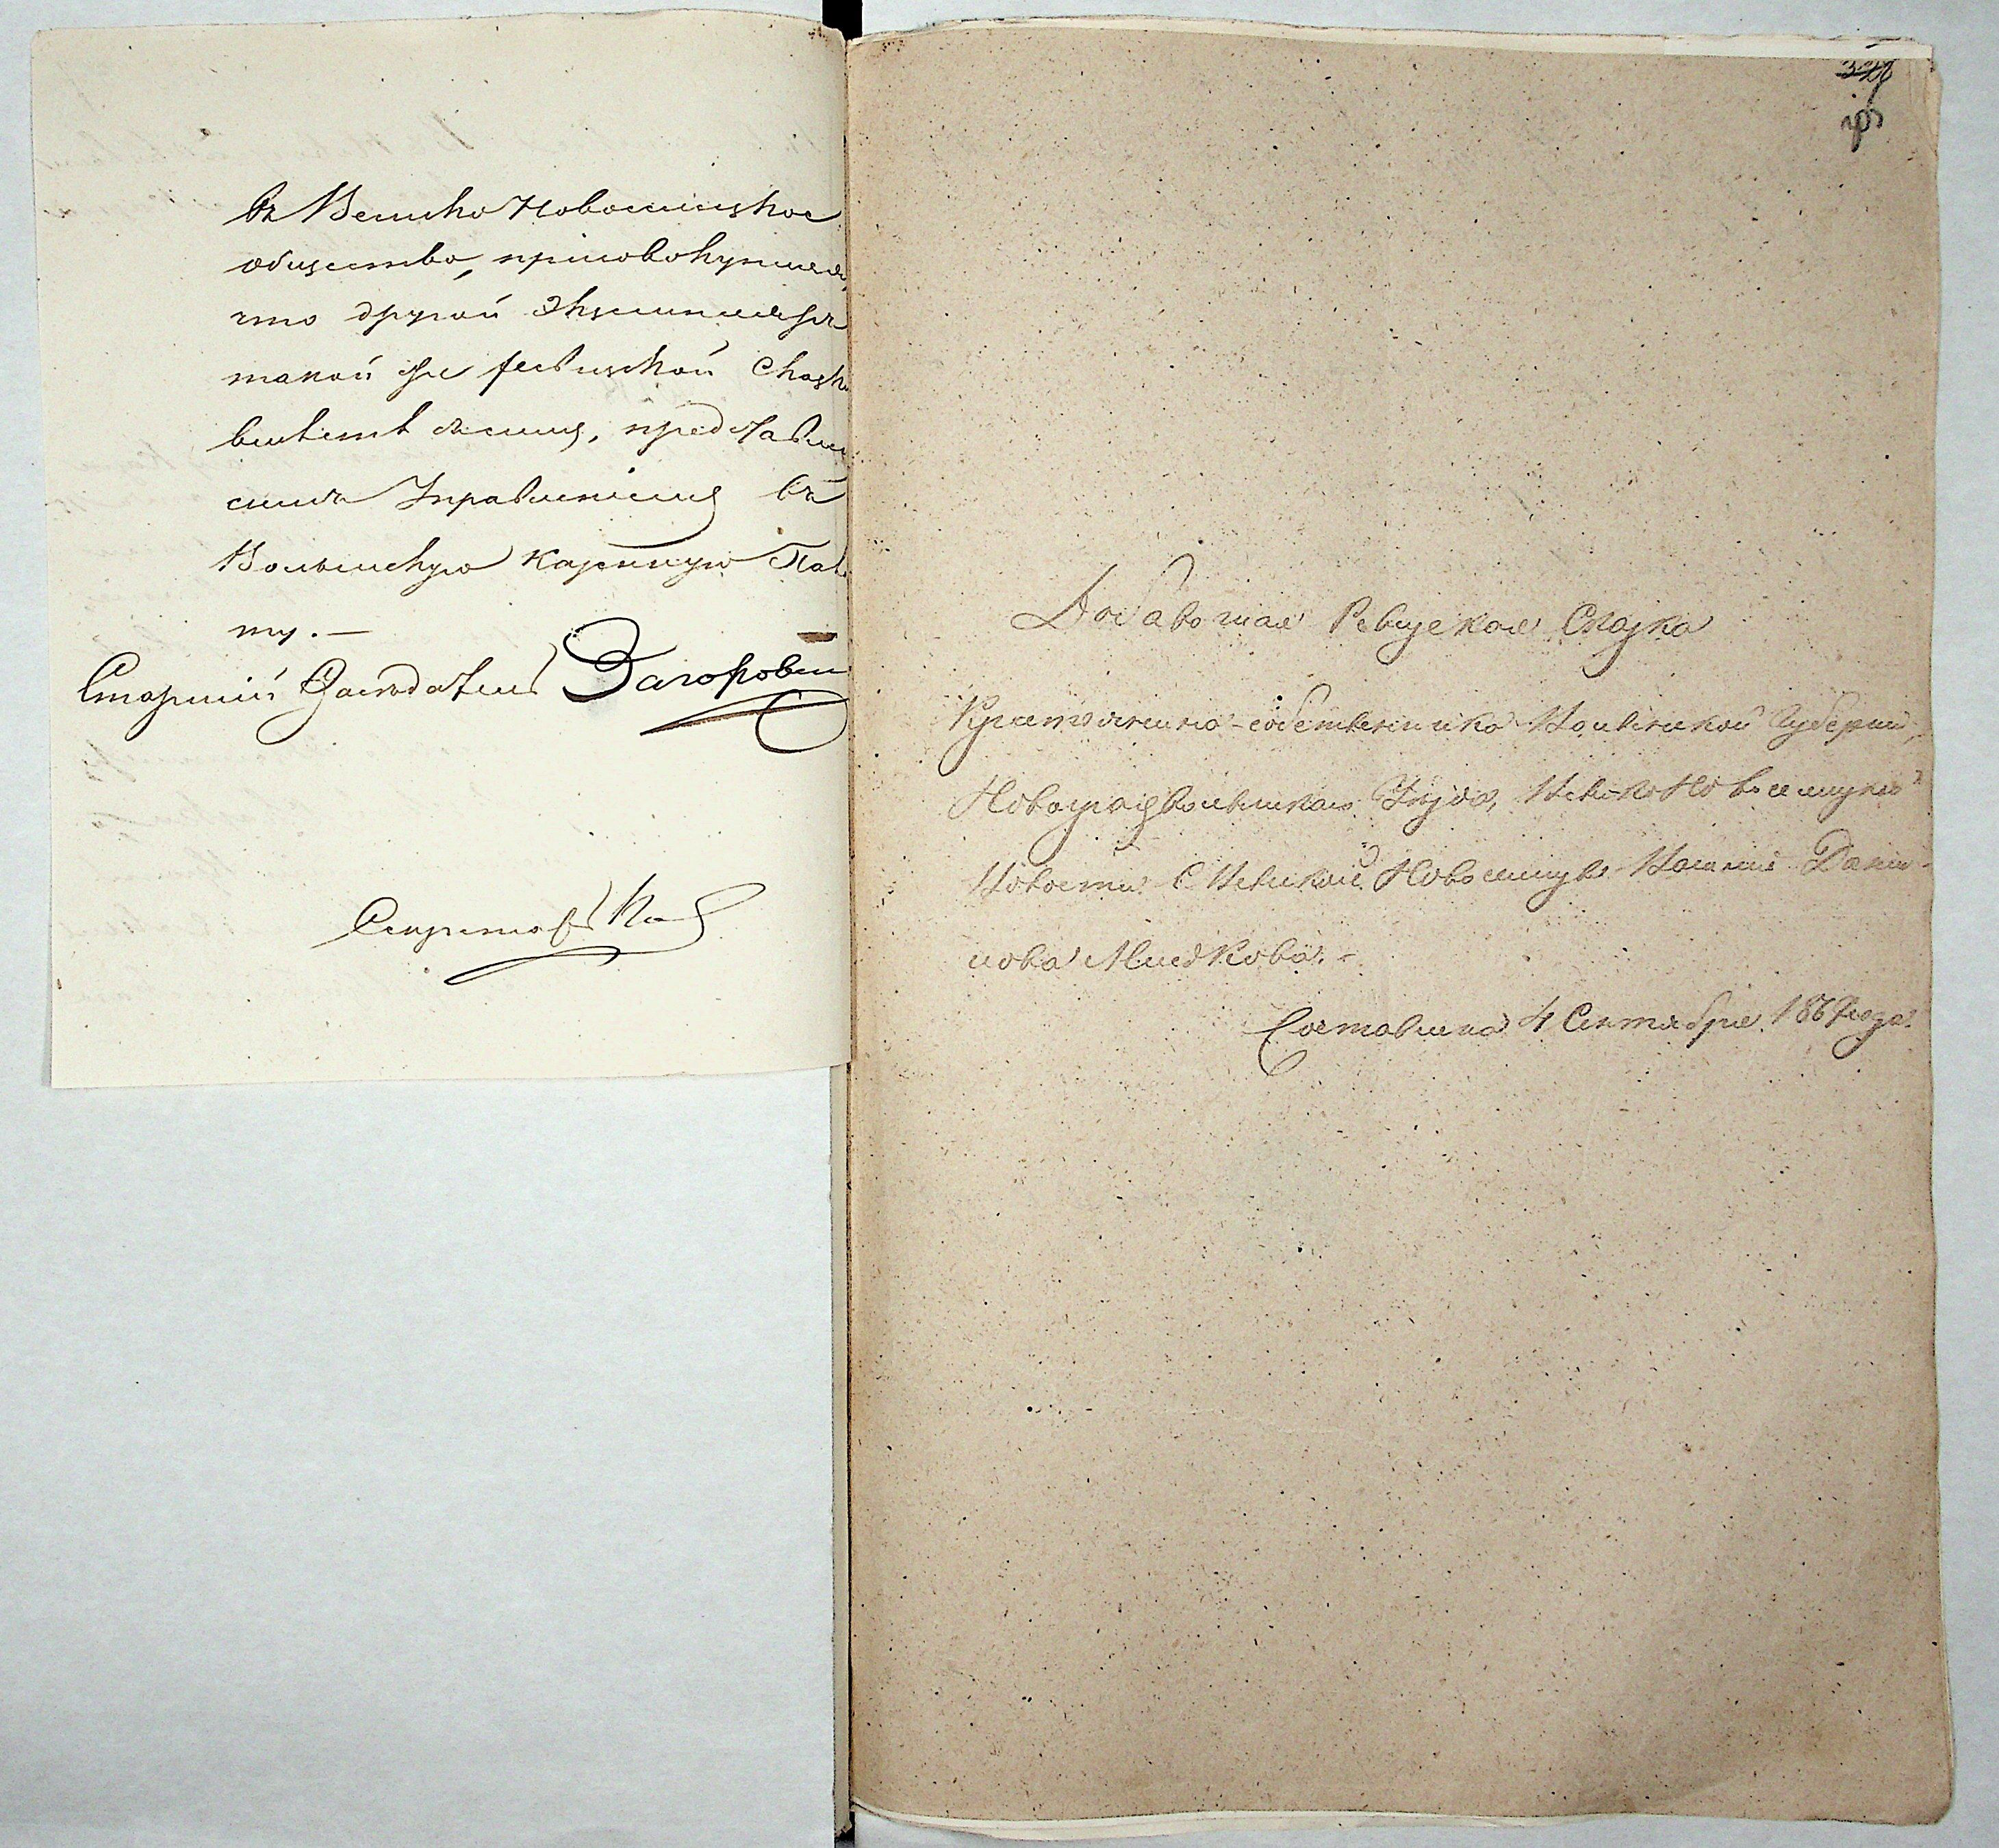 въ Велико Новоселицкое
общество, присовокупляя,
что другой экземпляръ
такой же ревизской сказки
вмѣстѣ съ симъ, представлен
симъ Управленіемъ въ
Волынскую Казенную Пала
ту. —
Старшій Засѣдатель Загоровск
Секретарь
Добавочная Ревизская Сказка
Крестьянина-собственника Волынской Губерніи,
Новоградволынскаго Уѣзда, Велико Новоселицкой
Волости С Великой Новоселицы Дани-
лова
Составлена 4 Сентября 186 года.